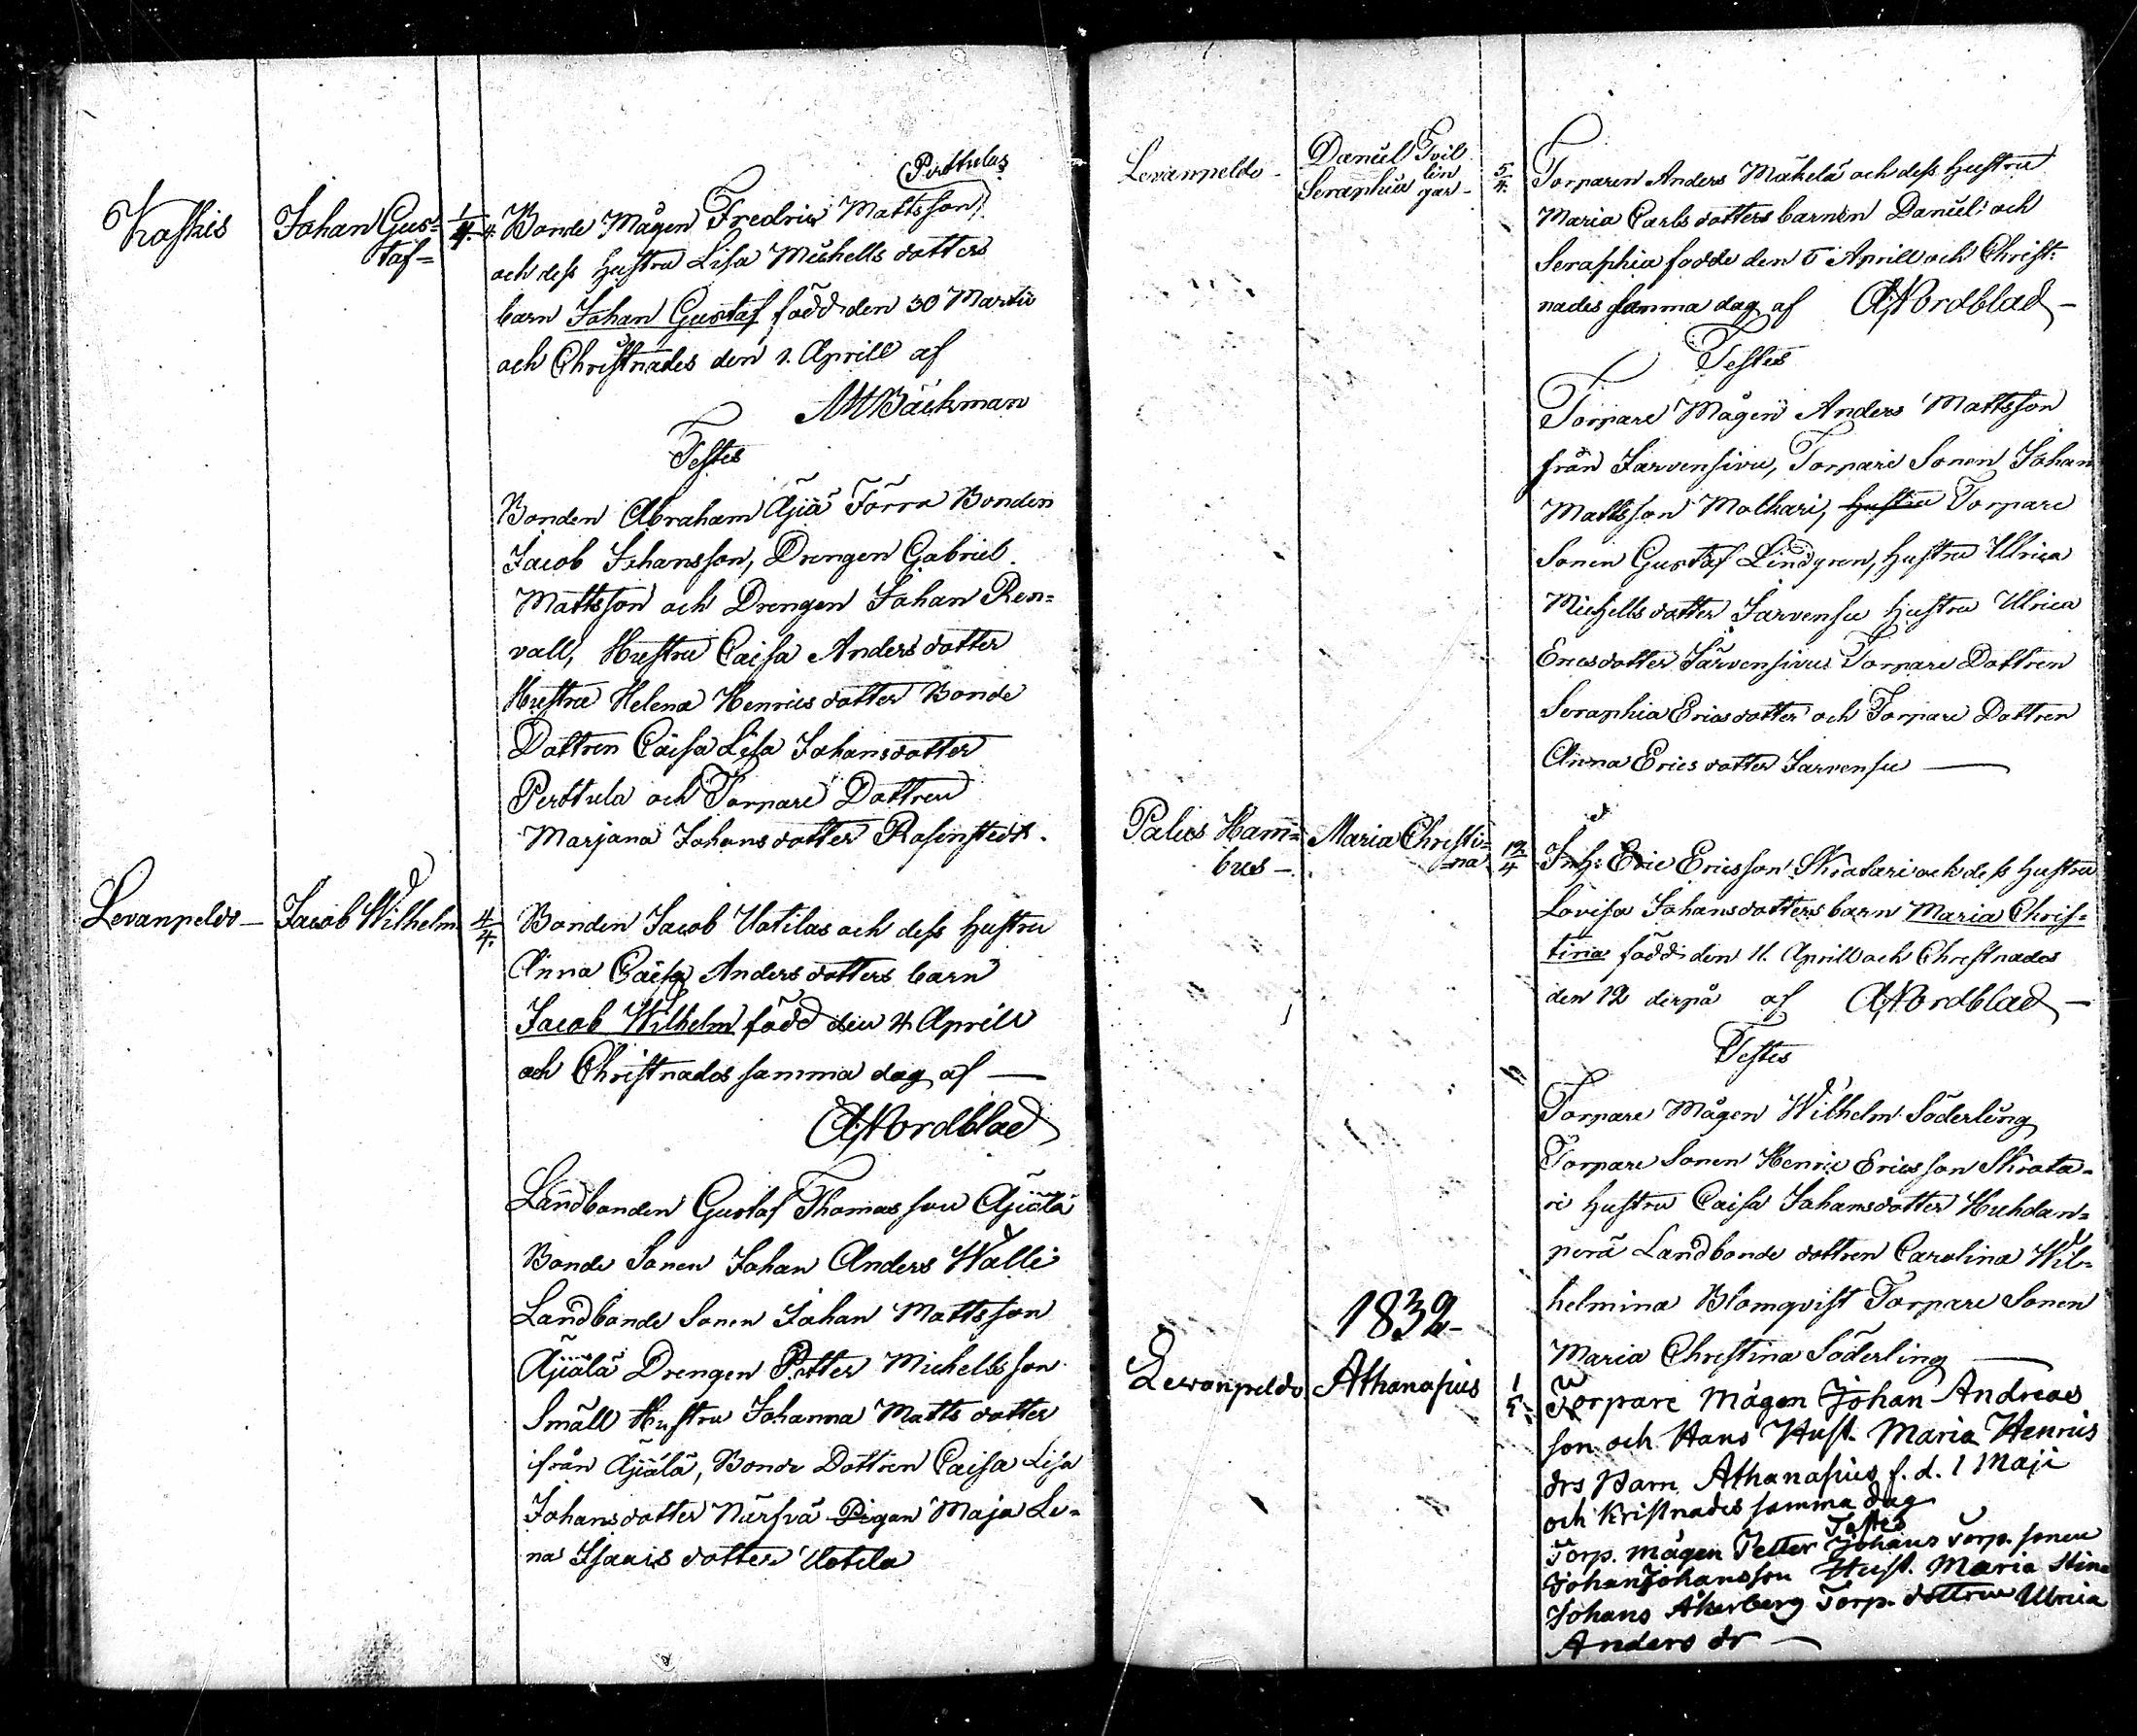 Perttulas
Kaskis
Johan Gus=
taf=
1/4.
Bonde Mågen Fredric Mattsson
och dess hustru Lisa Michells dotters
barn Johan Gustaf född den 30 Martii
och Christnades den 1. Aprill af
AWBäckman
Testes
Bonden Abraham Äjiä Förra Bonden
Jacob Johansson, Drengen Gabriel
Mattsson och Drengen Johan Ren=
vall, Hustru Caisa Anders dotter
Hustru Helena Henrics dotter Bonde
Dottren Caisa Lisa Johansdotter
Perttula och Torpare Dottren
Marjana Johans dotter Rosenstedt.
Levanpeldo —
Jacob Wilhelm
4/4.
Bonden Jacob Uotilas och dess hustru
Anna Caisa Anders dotters barn
Jacob Wilhelm född den 4 Aprill
och Christnades samma dag af —
ANordblad
Landbonden Gustaf Thomasson Äjiälä
Bonde Sonen Johan Anders Walli
Landbonde Sonen Johan Mattsson
Äjiälä Drengen Petter Michellsson
Småll Hustru Johanna Matts dotter
ifrån Äjiälä, Bonde Dottren Caisa Lisa
Johansdotter Närfvä Pigan Maja Le=
na Isaacs dotter Uotila
Levanpeldo -
Daniel Tvil
Seraphia lin
gar -
5/4.
Torparen Anders Mäkelä och dess hustru
Maria Carls dotters barnen Daniel och
Seraphia fodde den 5 Aprill och Christ=
nades samma dag af ANordblad —
Testes
Torpare Mågen Anders Mattsson
från Jarvensivu, Torpare Sonen Johan
Mattsson Molkari, hustru Torpare
Sonen Gustaf Lindgren, hustru Ulrica
Michells dotter Jarvensu hustru Ulrica
Ericsdotter Järvensivu Torpare Dottren
Seraphia Ericsdotter och Torpare Dottren
Anna Erics dotter Jarvensu —
Palus Ham=
bus —
Maria Christi=
na
12/4
Inh: Eric Ericsson Skratari och dess hustru
Lovisa Johansdotters barn Maria Chris=
tina född den 11. Aprill och Christnades
den 12 derpå af ANordblad —
Testes
Torpare Mågen Wilhelm Söderling
Torpare Sonen Henric Ericsson Skrata=
ri hustru Caisa Johansdotter Huhdan=
perä Landbonde dottren Carolina Wil=
helmina Blomqvist Torpare Sonen
Maria Christina Söderling —
1832-
Levonpeldo
Athanasius
1/5
Torpare Mågen Johan Andreas
son och Hans Hust. Maria Henrics
drs Barn Athanasius f. d. 1 Maji
och Kristnades samma dag
Testes
Torp. mågen Petter Johans Torp. sonen
Johan Johansson Hust. Maria Stina
Johans Åkerberg Torp. dottren Ulrica
Anders dr —